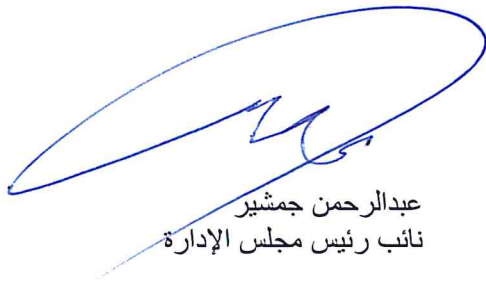 عبدالرحمن جمشير
نائب رئيس مجلس الإدارة